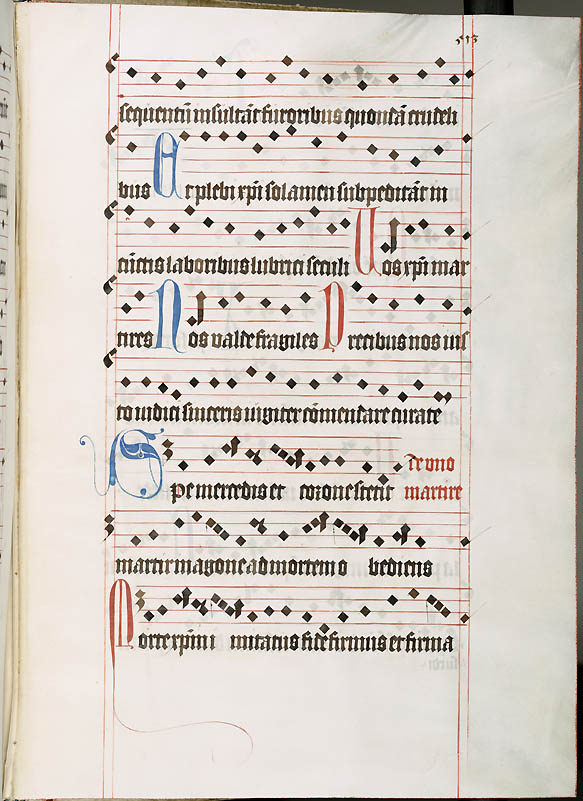 sequentiū insultāt furoribus quondā crudeli
bus Et plebi xp̄i solamen subpeditāt in
cūctis laboribus lubrici seculi Uos xp̄i mar
tires Nos valde fragiles Precibus nos ius
to iudici sinceris iugiter cōmendare curate
Spe mercedis et corone stetit
De uno
martire
martir in agone ad mortem o bediens
Morte xp̄m imitatus fide firmus et firma